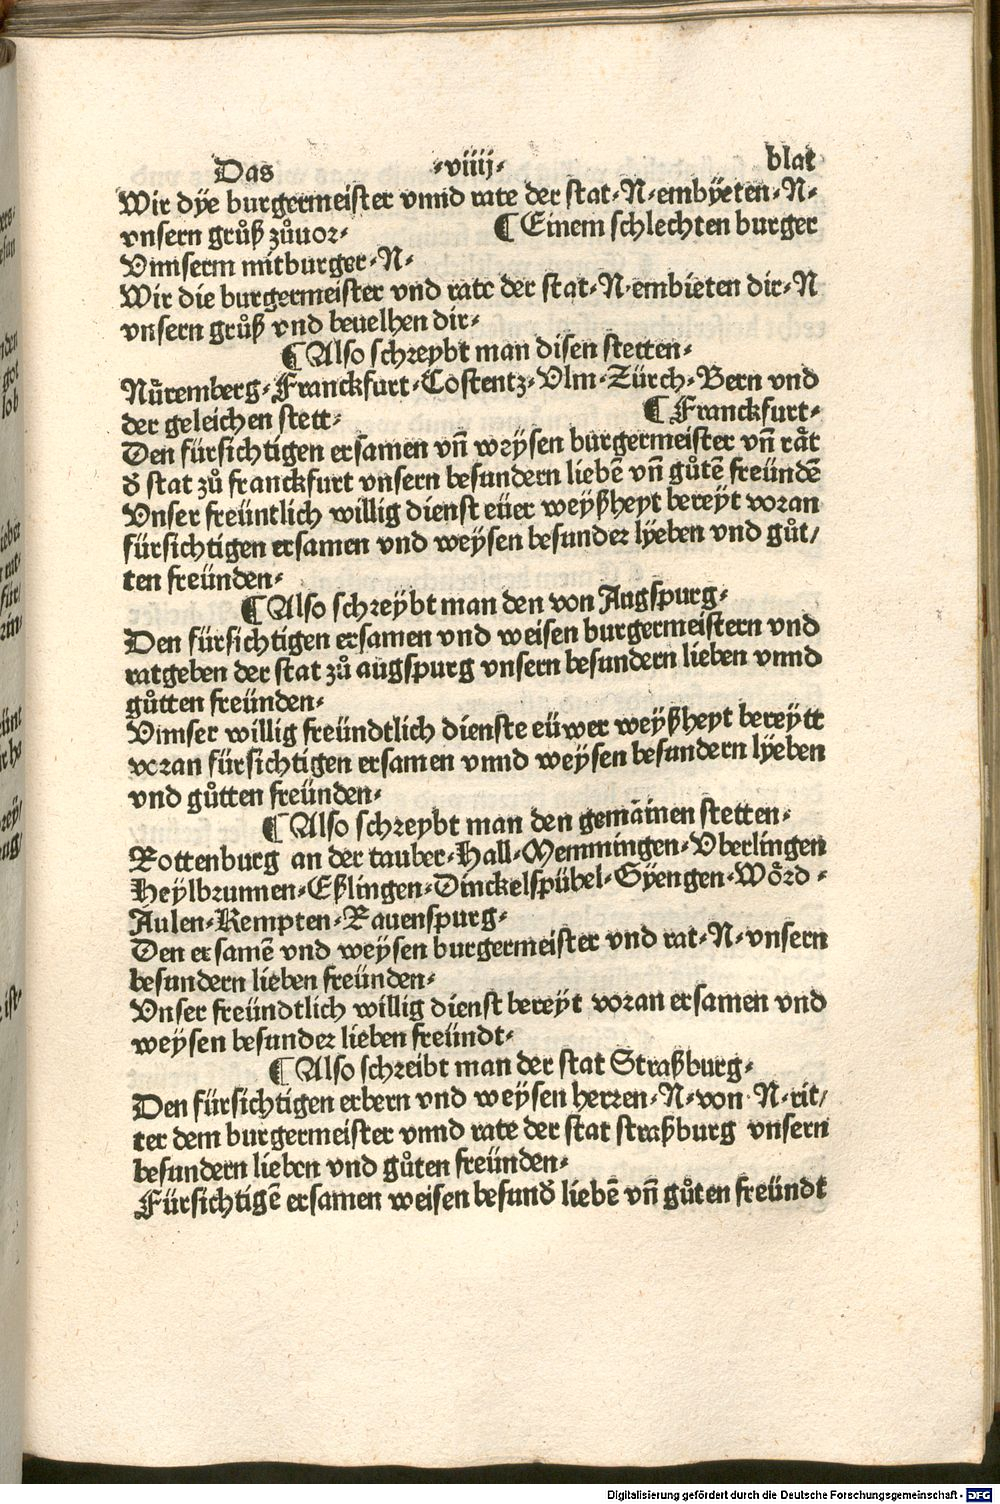 Das ·viiij· blat
Wir dÿe burgermeister vnnd rate der stat·N·embÿeten·N·
vnsern grůß zůuor· ¶ Einem schlechten burger
Vnnserm mitburger·N·
Wir die burgermeister vnd rate der stat·N·embieten dir·N
vnsern grůß vnd beuelhen dir·
¶ Also schreybt man disen stetten·
Nu᷑remberg·Franckfurt·Costentz·Vlm·Zürch·Bern vnd
der geleichen stett· ¶ Franckfurt·
Den fürsichtigen ersamen vn̄ weÿsen burgermeister vn̄ rät
d̕ stat zů franckfurt vnsern besundern liebē vn̄ gůtē freündē
Vnser freüntlich willig dienst eüer weÿßheyt bereÿt voran
fürsichtigen ersamen vnd weÿsen besunder lÿeben vnd gůt/
ten freünden·
¶ Also schreÿbt man den von Augspurg·
Den fürsichtigen ersamen vnd weisen burgermeistern vnd
ratgeben der stat zů augspurg vnsern besundern lieben vnnd
gůtten freünden·
Vnnser willig freündtlich dienste eüwer weÿßheyt bereÿtt
voran fürsichtigen ersamen vnnd weÿsen besundern lÿeben
vnd gůtten freünden·
¶ Also schreybt man den gemäinen stetten·
Rottenburg an der tauber·Hall·Memmingen·Vberlingen
Heÿlbrunnen·Eßlingen·Dinckelspübel·Gÿengen·Wörd·
Aulen·Kempten·Rauenspurg·
Den ersamē vnd weÿsen burgermeister vnd rat·N·vnsern
besundern lieben freünden·
Vnser freündtlich willig dienst bereÿt voran ersamen vnd
weÿsen besunder lieben freündt·
¶ Also schreibt man der stat Straßburg·
Den fürsichtigen erbern vnd weÿsen herren·N·von·N·rit/
ter dem burgermeister vnnd rate der stat straßburg vnsern
besundern lieben vnd gůten freünden·
Fürsichtigē ersamen weisen besund̕ liebē vn̄ gůten freündt
Digitalisierung gefördert durch die Deutsche Forschungsgemeinschaft - DFG